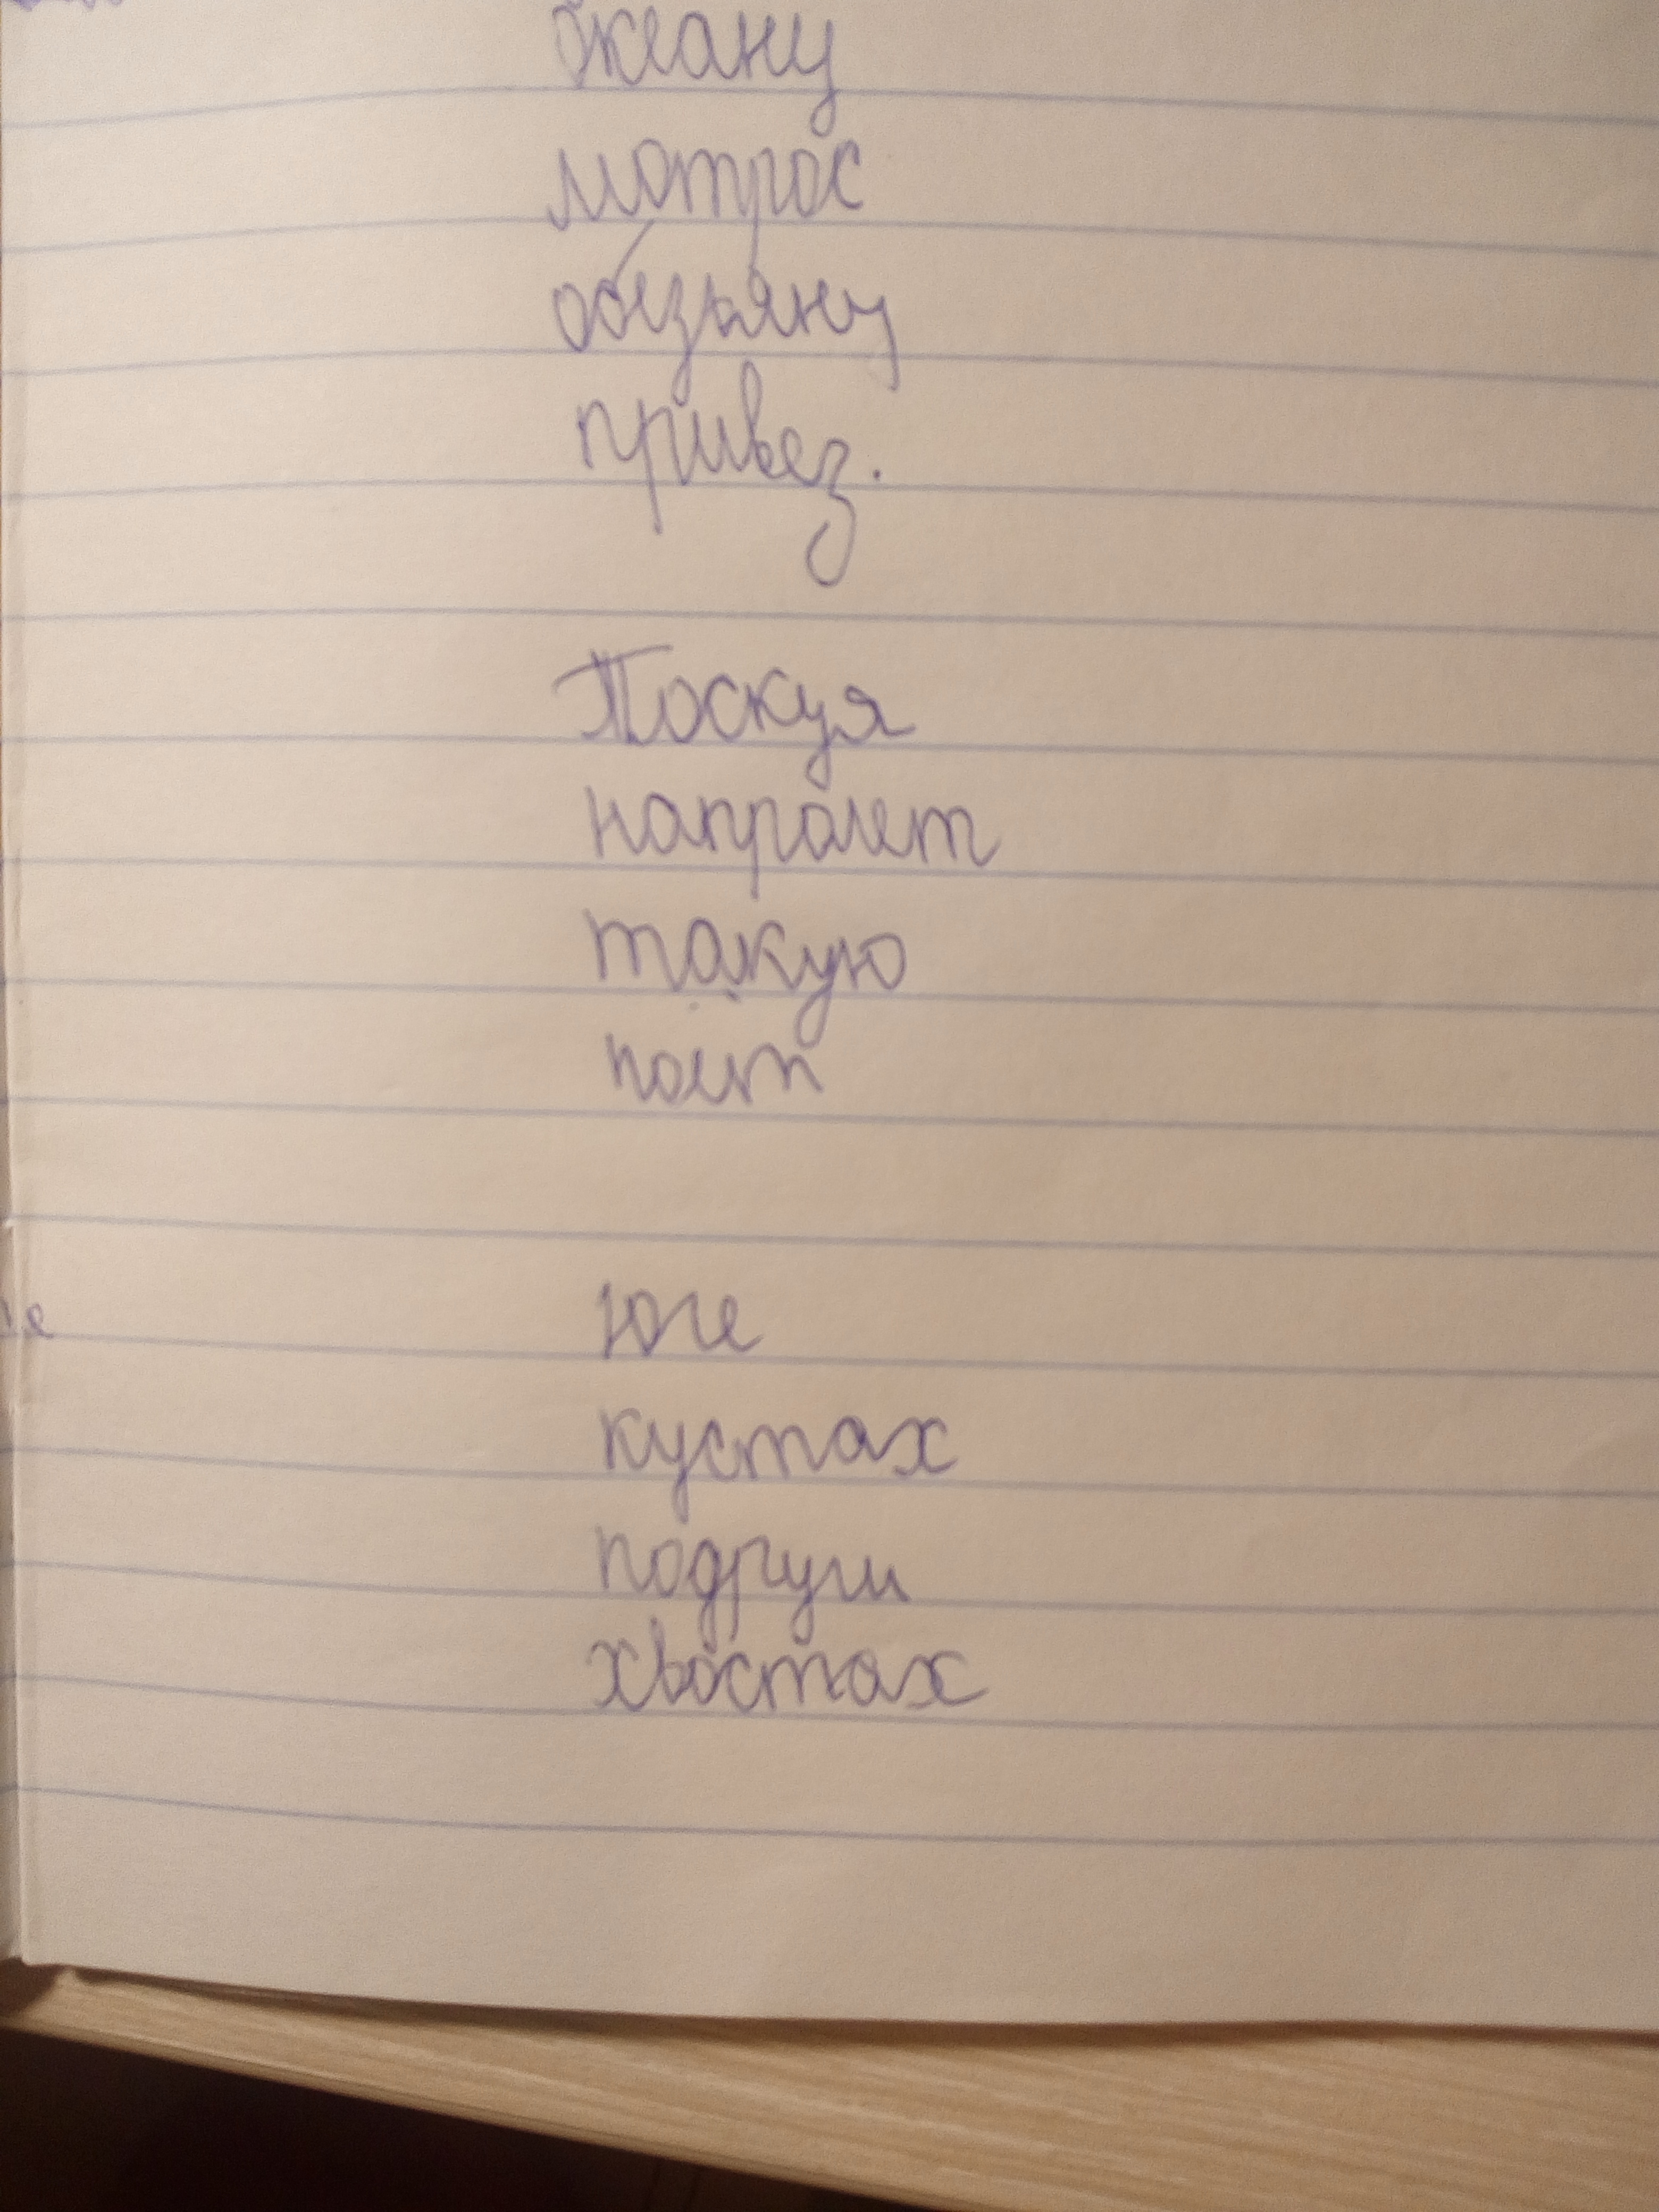 океану
матрос
обезьяну
привез.
Тоскуя
напролет
такую
поёт
юге
кустах
подруги
хвостах